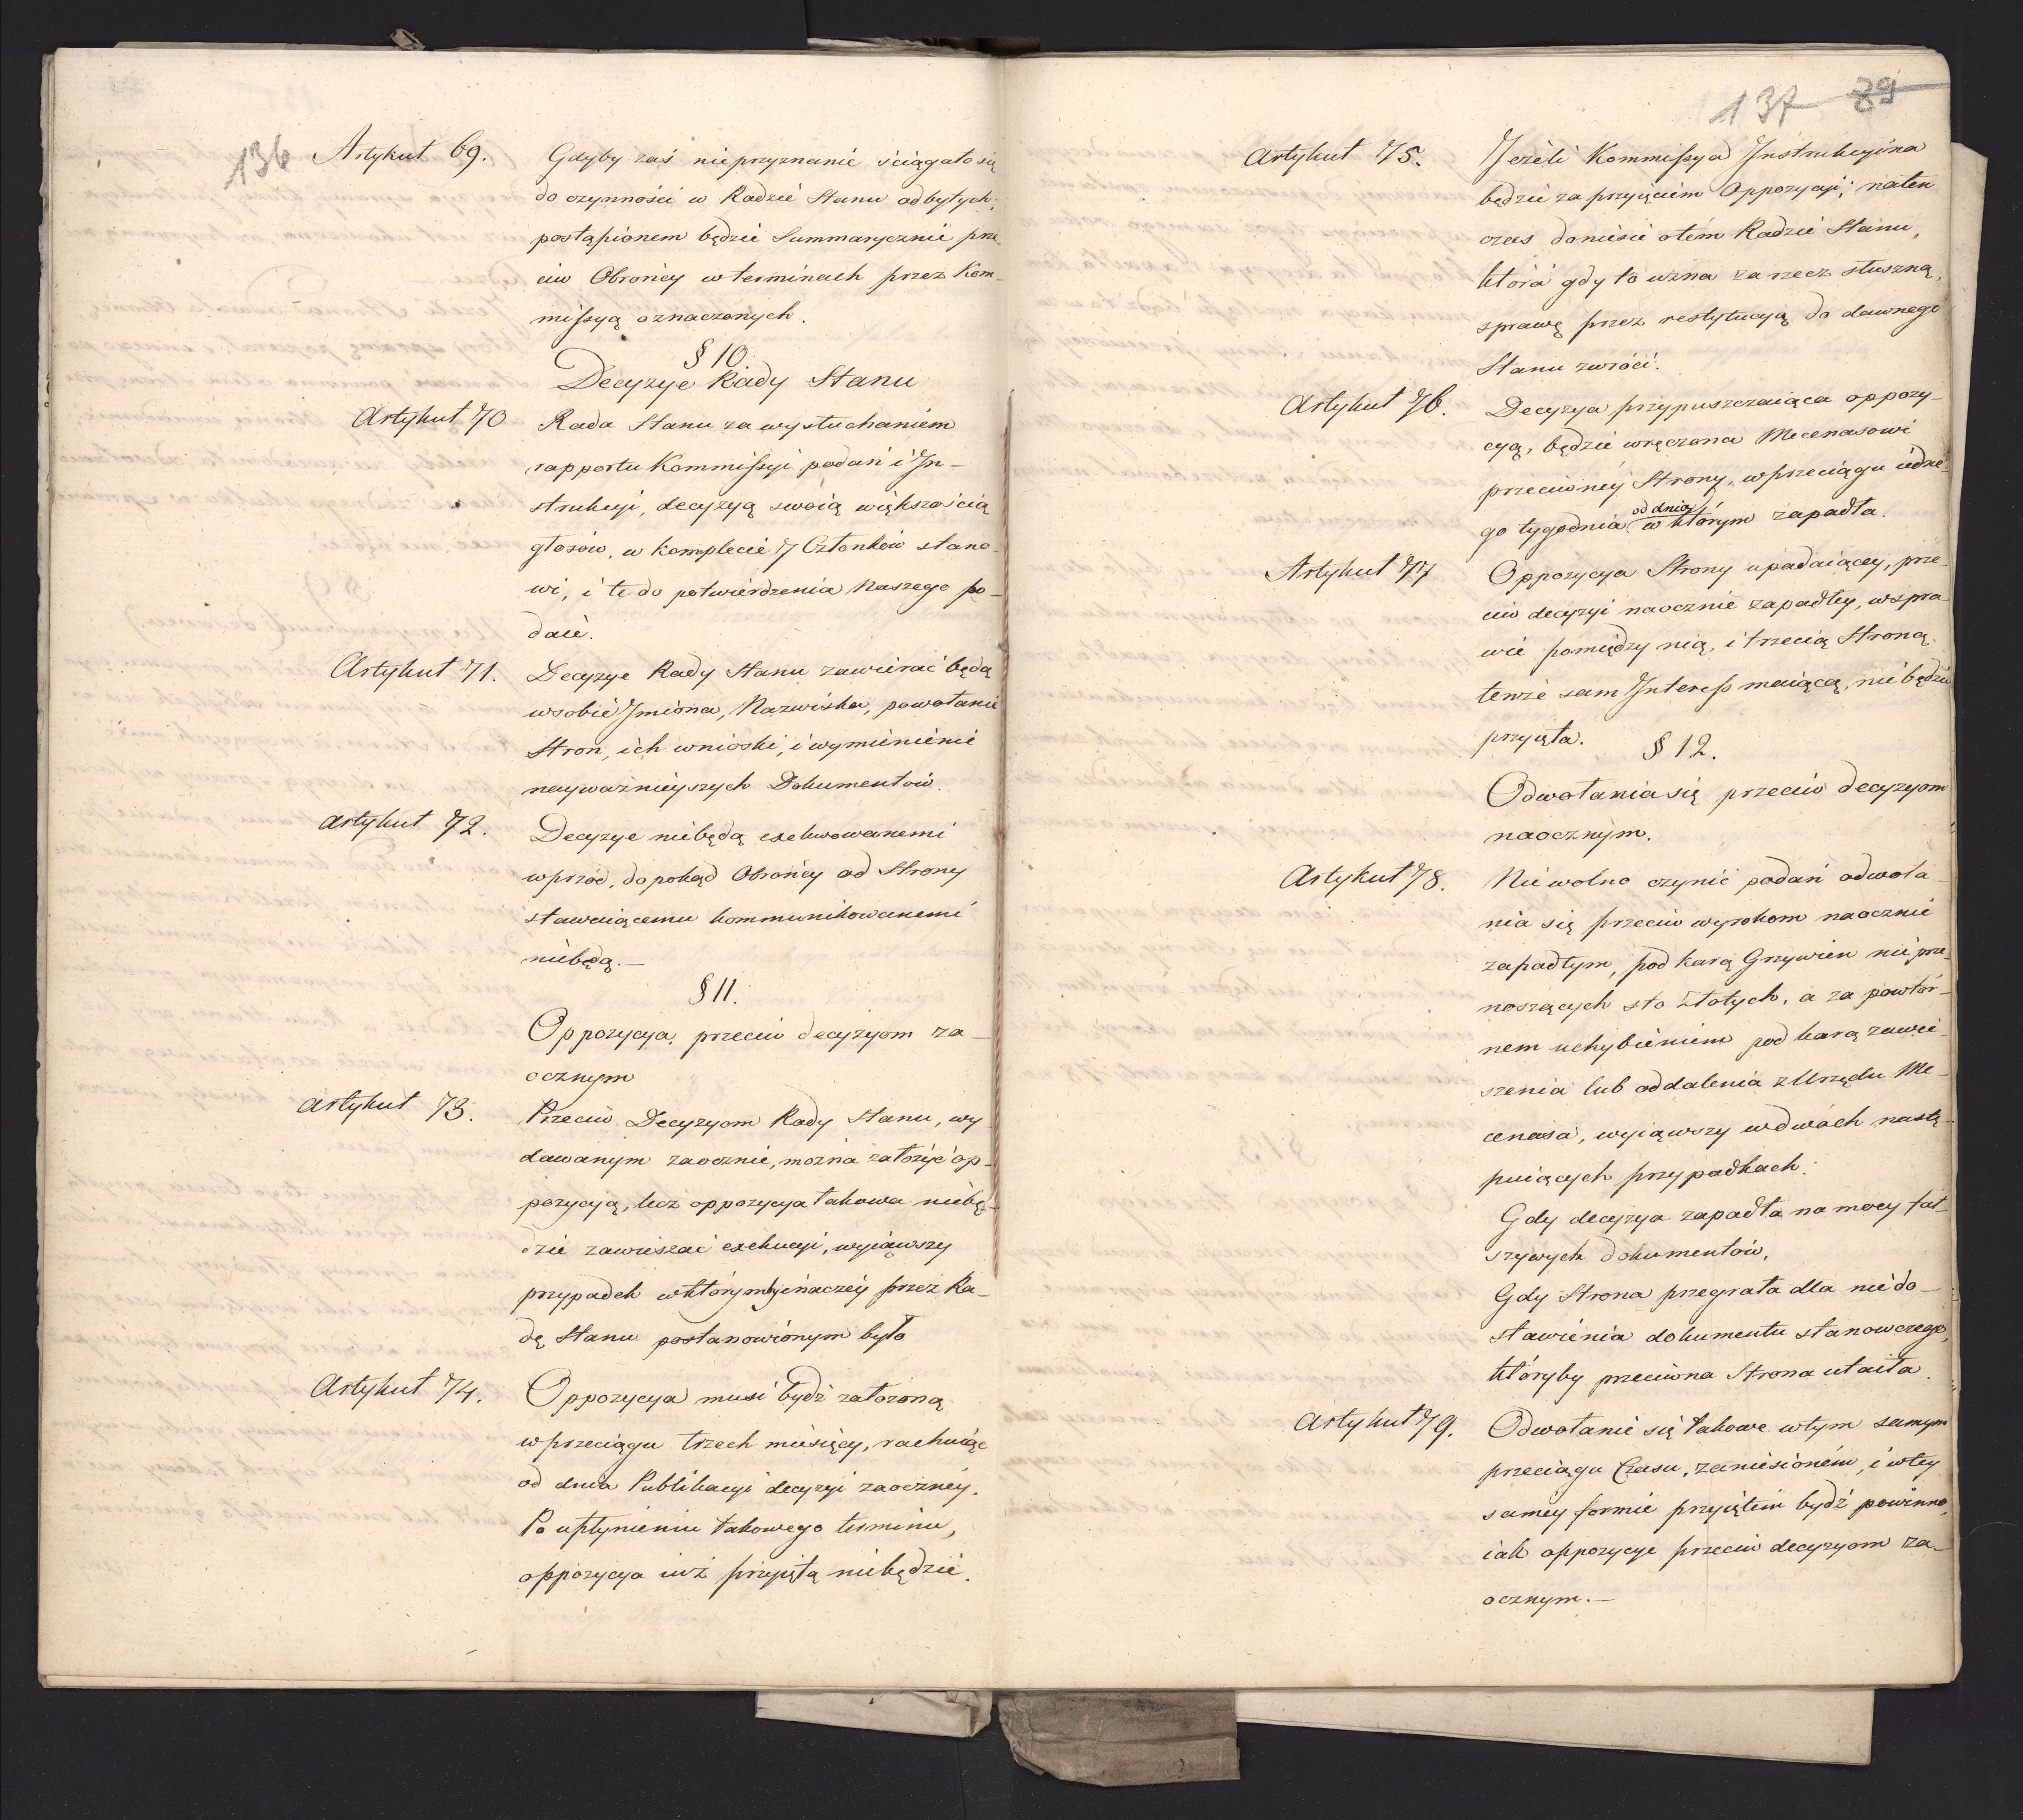 136
Artykuł 69.
Gdyby zaś nieprzyznanie ściągało się
do czynności w Radzie Stanu odbytych;
postąpionem będzie Summarycznie prze-
ciw Obrońcy w terminach przez Kom-
missyą oznaczonych.
§ 10.
Decyzye Rady Stanu
Artykuł 70
Rada Stanu za wysłuchaniem
rapportu Kommissyi podań i In-
strukcyi, decyzyą swoią większością
głosów, w komplecie 7 Członków stano-
wi, i te do potwierdzenia Naszego po-
daie.
Artykuł 71.
Decyzye Rady Stanu zawierać będą
w sobie Imiona, Nazwiska, powołanie
Stron, ich wnioski, i wymienienie
nayważnieyszych Dokumentów.
Artykuł 72.
Decyzye niebędą exekwowanemi
wprzód, dopokąd Obrońcy od Strony
stawaiącemu kommunikowanemi
niebędą.—
§ 11.
Oppozycya przeciw decyzyom za-
ocznym
Artykuł 73.
Przeciw Decyzyom Rady Stanu, wy
dawanym zaocznie, można założyć op-
pozycyą, lecz oppozycya takowa niebę-
dzie zawieszać exekucyi, wyiąwszy
przypadek w którymby inaczéy przez Ra-
dę Stanu postanowionym było
Artykuł 74.
Oppozycya musi bydź założoną
w przeciągu trzech miesięcy, rachuiąc
od dnia Publikacyi decyzyi zaocznéy.
Po upłynieniu takowego terminu,
oppozycya iuż przyiętą niebędzie.
137 89
Artykuł 75.
Jeżeli Kommissya Instrukcyina
będzie za przyięciem Oppozycyi; naten
czas doniesie o tém Radzie Stanu,
która gdy to uzna za rzecz słuszną,
sprawę przez restytucyą do dawnego
Stanu zwróci.
Artykuł 76.
Decyzya przypuszczaiąca oppozy-
cyą, będzie wręczona Mecenasowi
przeciwnéy Strony, w przeciągu iedne-
go tygodnia od dnia w którym zapadła.
Artykuł 77
Oppozycya Strony upadaiącey, prze-
ciw decyzyi naocznie zapadłey, w spra-
wie pomiędzy nią, i trzecią Stroną
tenże sam Interess maiącą, nie będzie
przyięta.
§ 12.
Odwołania się przeciw decyzyom
naocznym.
Artykuł 78.
Nie wolno czynić podań odwoła-
nia się przeciw wyrokom naocznie
zapadłym, pod karą Grzywien nie prze-
noszących sto Złotych, a za powtór-
nem uchybieniem pod karą zawie-
szenia lub oddalenia z Urzędu Me-
cenasa, wyiąwszy w dwóch nastę-
puiących przypadkach:
Gdy decyzya zapadła na mocy fał-
szywych dokumentów,
Gdy Strona przegrała dla niedo-
stawienia dokumentu stanowczego,
któryby przeciwna Strona utaiła.
Artykuł 79.
Odwołanie się takowe w tym samym
przeciągu Czasu, zaniesioném, i w téy
saméy formie przyiętém bydź powinno,
iak oppozycye przeciw decyzyom za-
ocznym.—